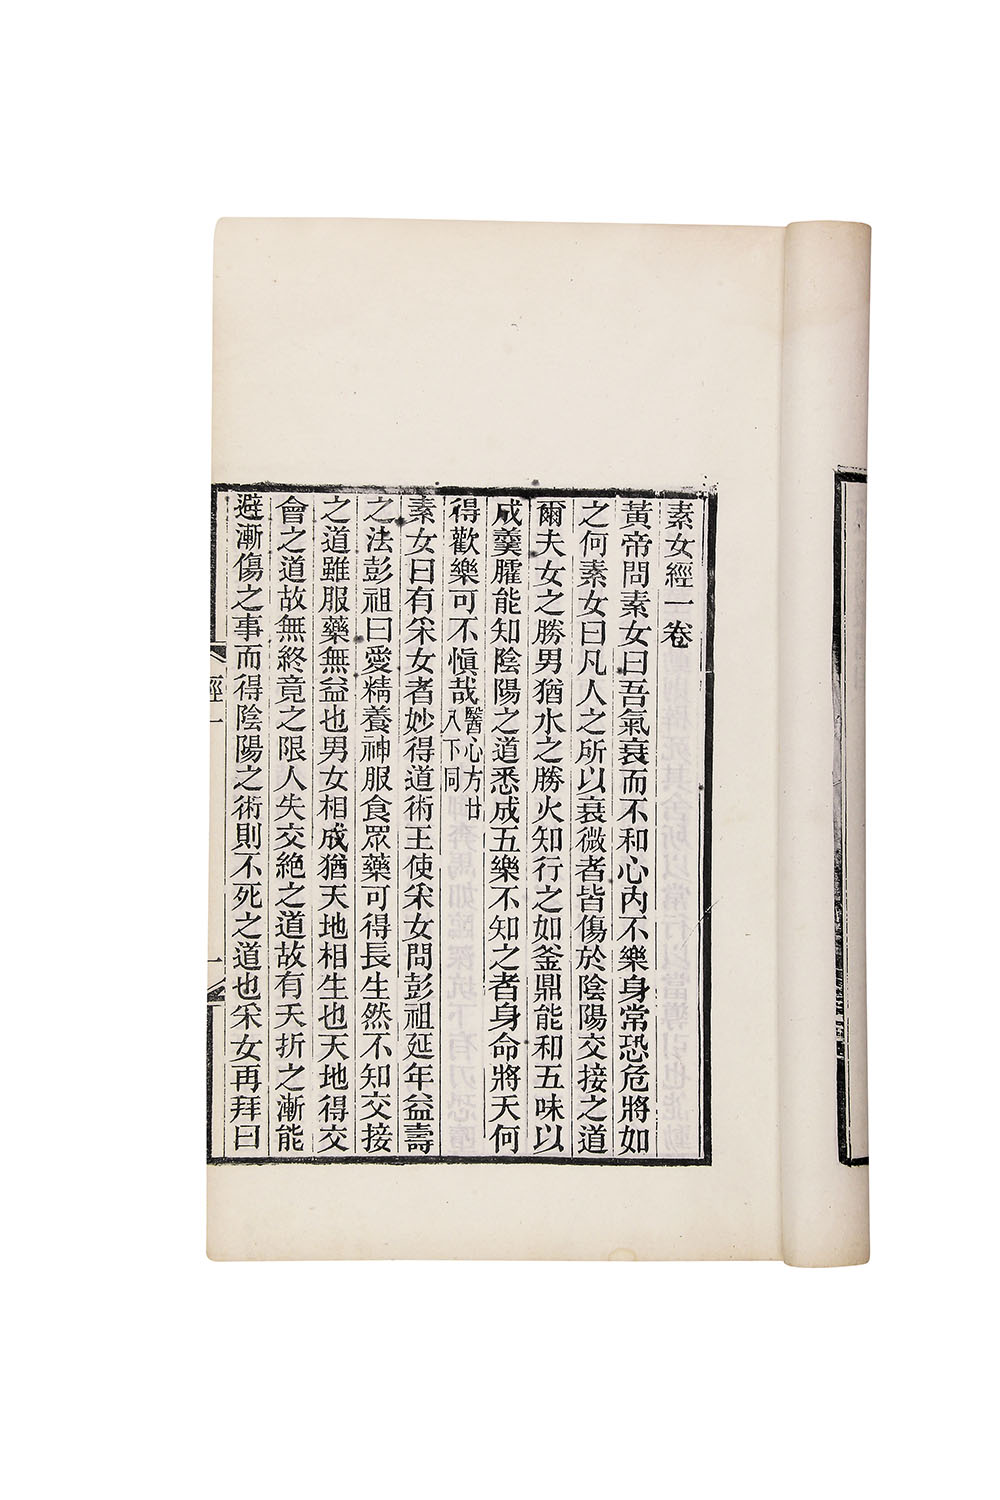 素女經一卷
黃帝問素女曰吾氣衰而不和心內不樂身常恐危將如
之何素女曰凡人之所以衰微者皆傷於陰陽交接之道
爾夫女之勝男猶水之勝火知行之如釜鼎能和五味以
成羹臛能知陰陽之道悉成五樂不知之者身命將夭何
得歡樂可不慎哉醫心方廿
八下同
素女曰有采女者妙得道術王使采女問彭祖延年益壽
之法彭祖曰愛精養神服食眾藥可得長生然不知交接
之道雖服藥無益也男女相成猶天地相生也天地得交
會之道故無終竟之限人失交絶之道故有夭折之漸能
避漸傷之事而得陰陽之術則不死之道也采女再拜曰
經一
一